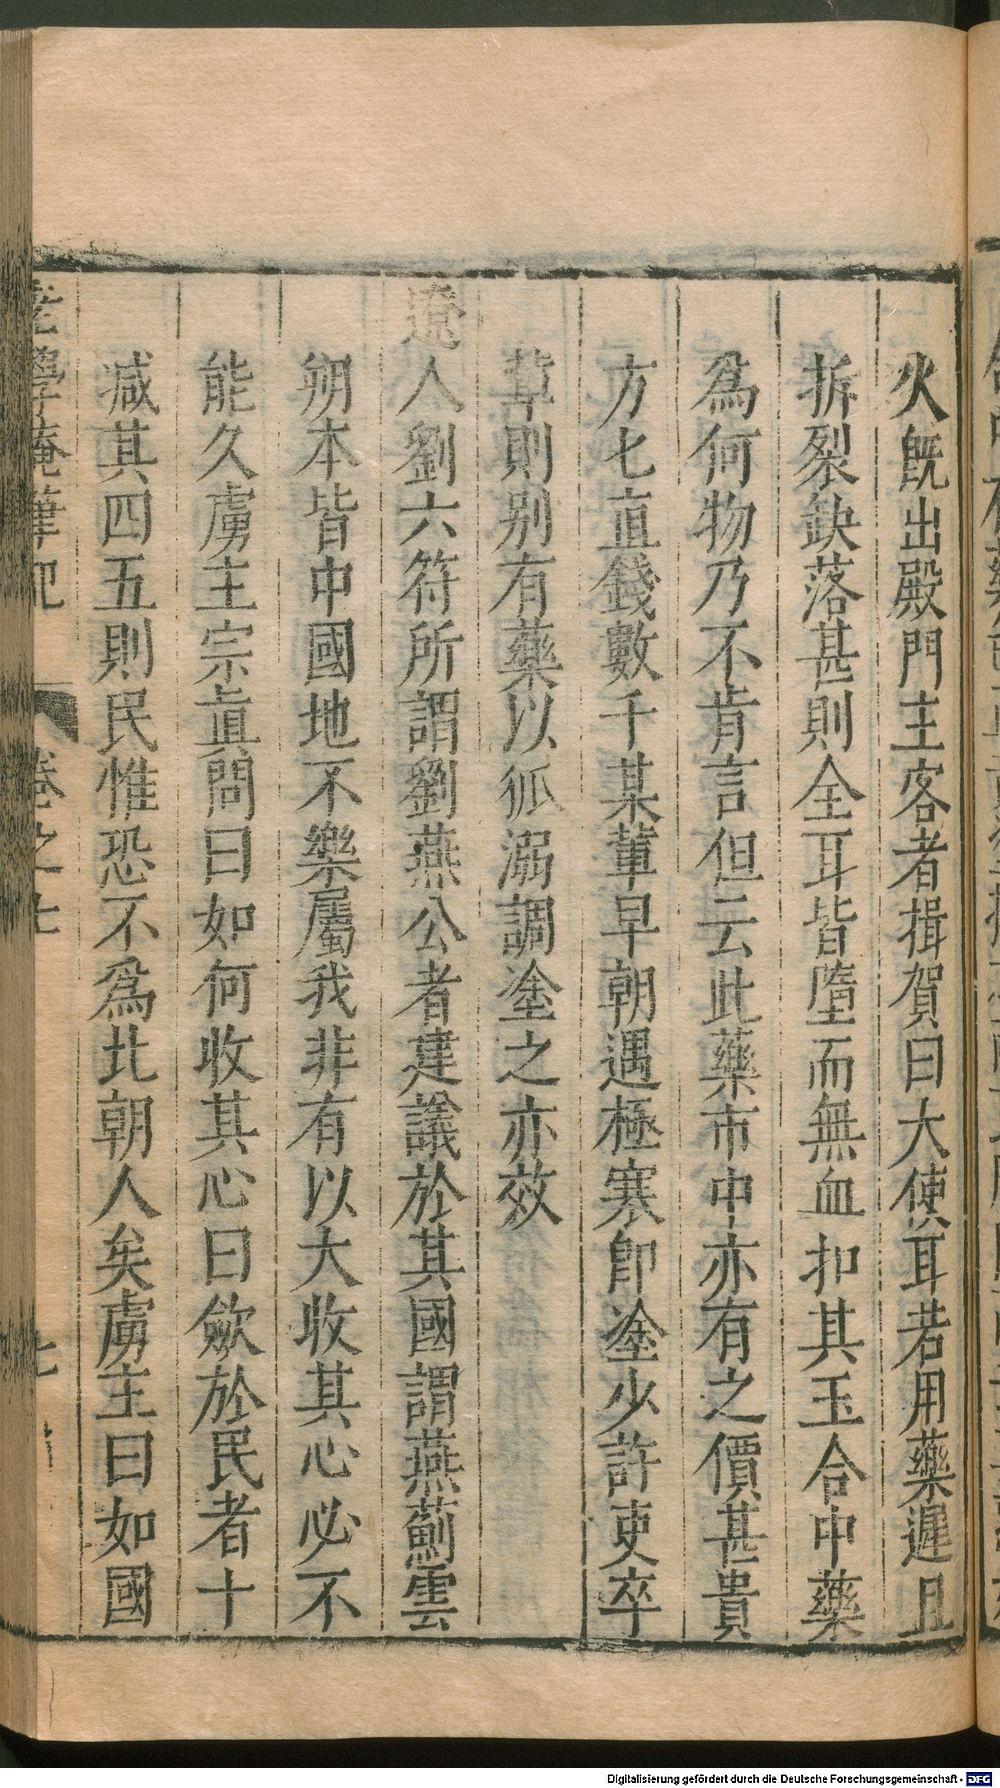 火旣出殿門主客者揖賀曰大使耳若用藥遲且
拆裂缺落甚則全耳皆墮而無血扣其玉合中藥
爲何物乃不肯言但云此藥市中亦有之價甚貴
方匕直錢數千某輩早朝遇極寒卽塗少許吏卒
輩則别有藥以狐溺調塗之亦效
遼人劉六符所謂劉燕公者建議於其國謂燕薊雲
朔本皆中國地不樂屬我非有以大收其心必不
能久虜主宗眞問曰如何收其心曰歛於民者十
减其四五則民惟恐不爲北朝人矣虜主曰如國
老學庵筆記 卷之七 七
Digitalisierung gefördert durch die Deutsche Forschungsgemeinschaft - DFG